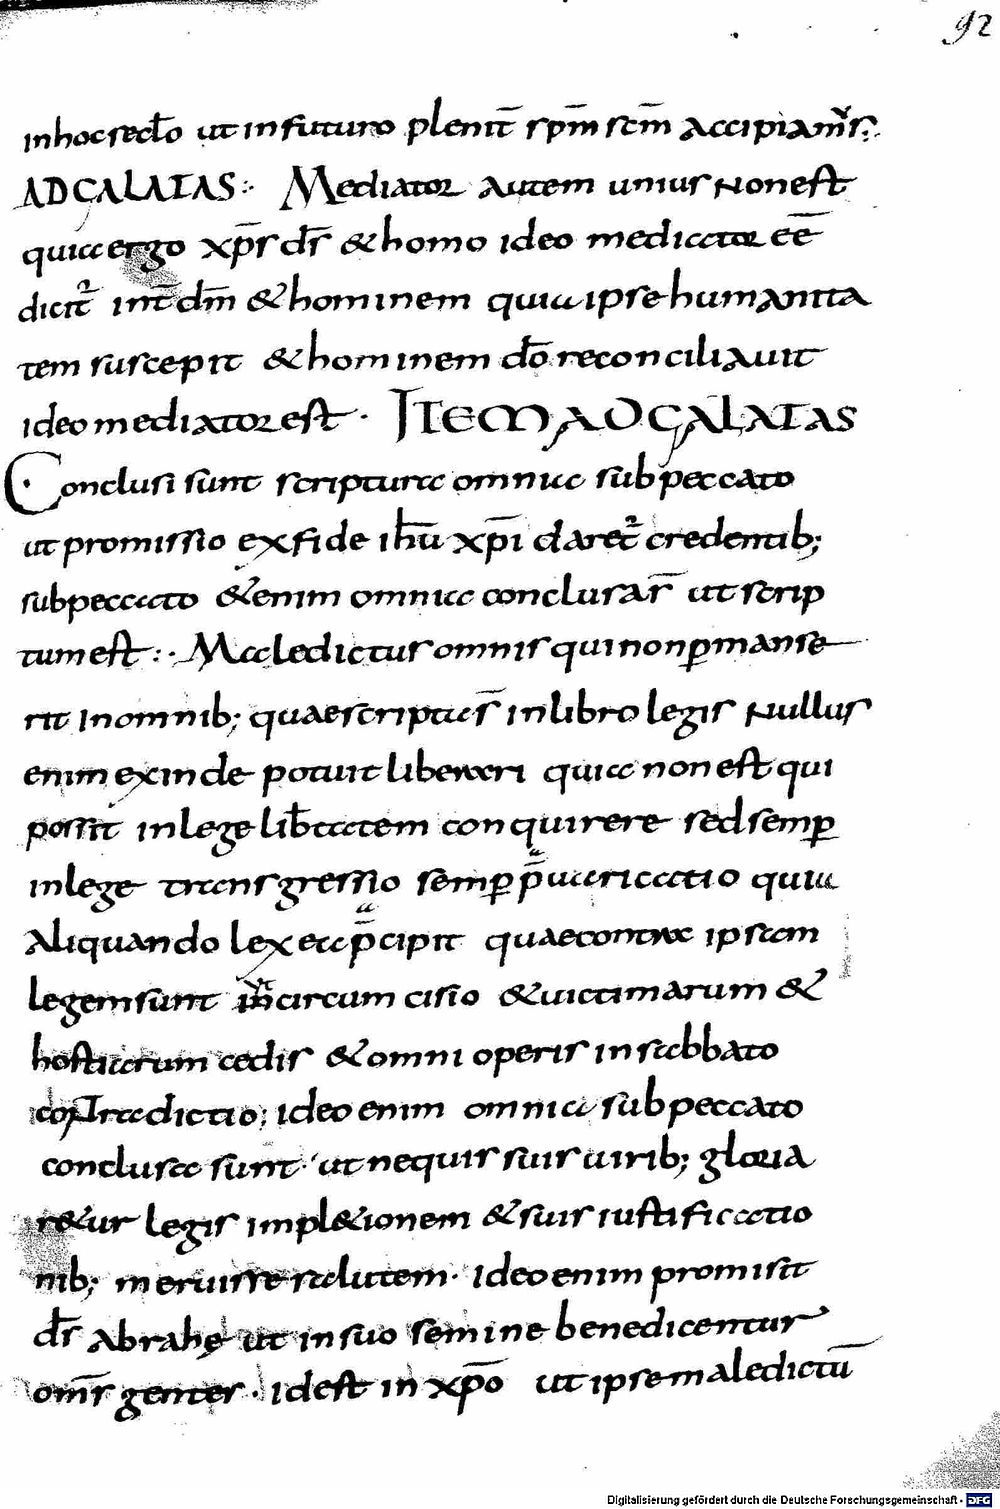 92
inhocsecło ut in futuro plenit̄ sp̄m sc̄m accipiam̄s:.
AD GALATAS:. Mediator autem unius non est
quia ergo xp̄s ds̄ & homo ideo mediator eē
dicit᷑ int̄ dm̄ & hominem quia ipse humanita
tem suscepit & hominem dō reconciliauit
ideo mediator est · ITEM AD GALATAS
Conclusi sunt scriptura omnia sub peccato
ut promissio ex fide ih̄u xp̄i daret᷑ credentib;
sub peccato & enim omnia conclusar̄ ut scrip
tum est:· Maledictus omnis qui non ꝑmanse
rit in omnib; quae scripta s̄ in libro legis Nullus
enim exinde potuit liberari quia non est qui
possit in lege lib̄tatem conquirere sed semꝑ
in lege transgressio semꝑ p̄uaricatio quia
aliquando lex ea p̄cipit quae contra ipsam
legem sunt in circumcisio & uictimarum &
hostiarum cedis & omni operis in sabbato
cont̄radictio; ideo enim omnia sub peccato
conclusa sunt · ut nequis suis uirib; gloria
r&ur legis impl&ionem & suis iustificatio
nib; meruisse salutem · Ideo enim promisit
ds̄ abrahę ut in suo semine benedicentur
om̄s gentes · Id est in xp̄o ut ipse maledictū
Digitalisierung gefördert durch die Deutsche Forschungsgemeinschaft - DFG